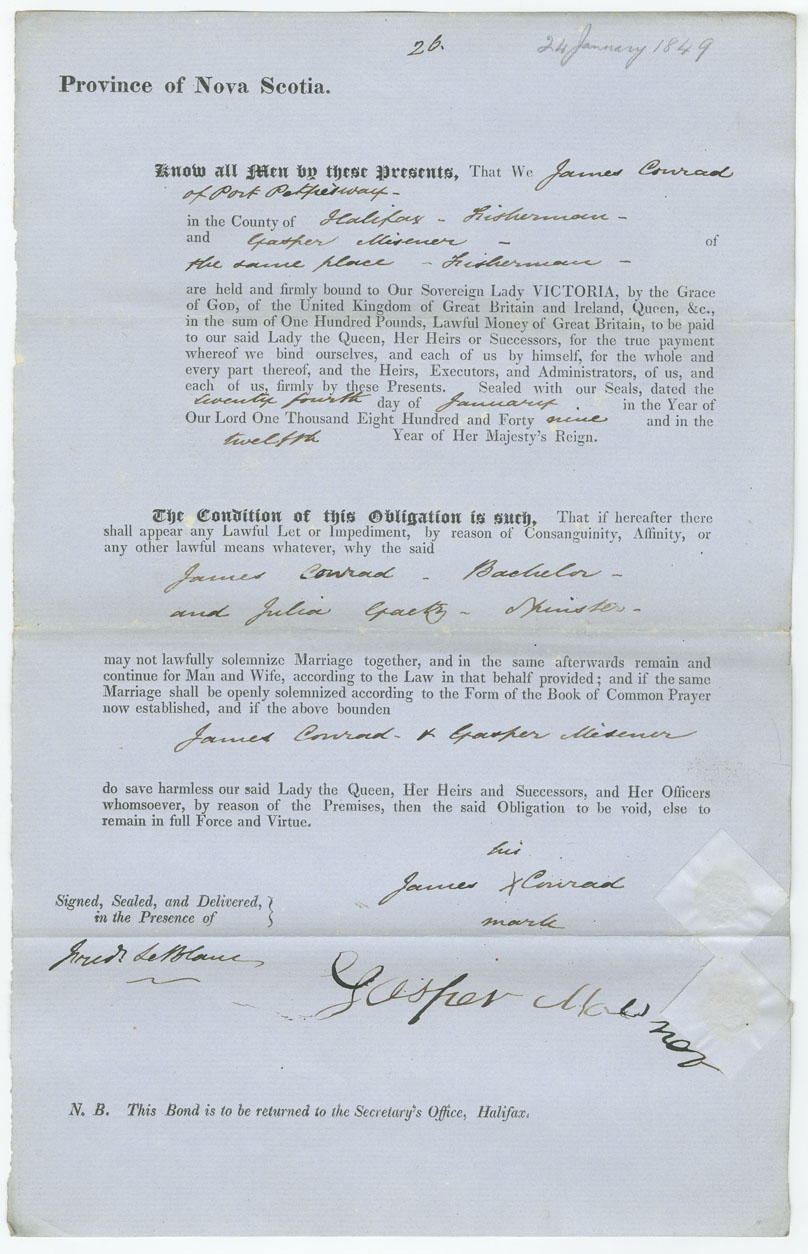 26.
24 January 1849
Province of Nova Scotia.
Know all Men by these Presents, That We James Conrad
of Port Petpeswax -
in the County of Halifax - Fisherman -
and Gasper Misener - of
the same place - Fisherman -
are held and firmly bound to Our Sovereign Lady VICTORIA, by the Grace
of GOD, of the United Kingdom of Great Britain and Ireland, Queen, &c.,
in the sum of One Hundred Pounds, Lawful Money of Great Britain, to be paid
to our said Lady the Queen, Her Heirs or Successors, for the true payment
whereof we bind ourselves, and each of us by himself, for the whole and
every part thereof, and the Heirs, Executors, and Administrators, of us, and
each of us, firmly by these Presents. Sealed with our Seals, dated the
twenty fourth day of January. in the Year of
Our Lord One Thousand Eight Hundred and Forty nine and in the
twelfth Year of Her Majesty's Reign.
The Condition of this Obligation is such, That if hereafter there
shall appear any Lawful Let or Impediment, by reason of Consanguinity, Affinity, or
any other lawful means whatever, why the said
James Conrad - Bachelor -
and Julia Gaetz - Spinster -
may not lawfully solemnize Marriage together, and in the same afterwards remain and
continue for Man and Wife, according to the Law in that behalf provided; and if the same
Marriage shall be openly solemnized according to the Form of the Book of Common Prayer
now established, and if the above bounden
James Conrad - & Gasper Misener
do save harmless our said Lady the Queen, Her Heirs and Successors, and Her Officers
whomsoever, by reason of the Premises, then the said Obligation to be void, else to
remain in full Force and Virtue.
his
James X Conrad
mark
Signed, Sealed, and Delivered, }
in the Presence of }
Fredk LeBlanc
Gasper
N. B. This Bond is to be returned to the Secretary's Office, Halifax.